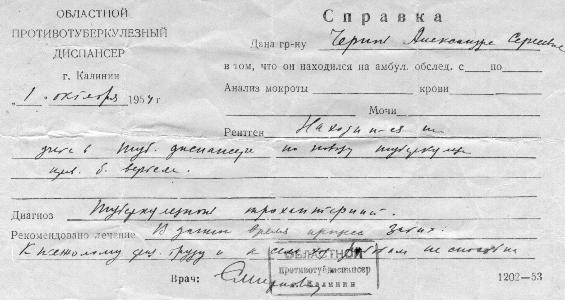 ОБЛАСТНОЙ
ПРОТИВОТУБЕРКУЛЕЗНЫЙ
ДИСПАНСЕР
г. Калинин
„1" октября 1954 г
Справка
Дана гр-ну Александру Сергеевич
в том, что он находился на амбул. обслед. с по
Анализ мокроты крови
Мочи
Рентген Находится на
учете в туб. диспансере по поводу туберкулеза
б. вертела.
Диагноз Туберкулезный трохантерит.
Рекомендовано лечение В данное время процесс затих.
К тяжелому физ. труду и к не способен
Врач:
ОБЛАСТНОЙ
противотубдиспансер
Калинин
1202—53